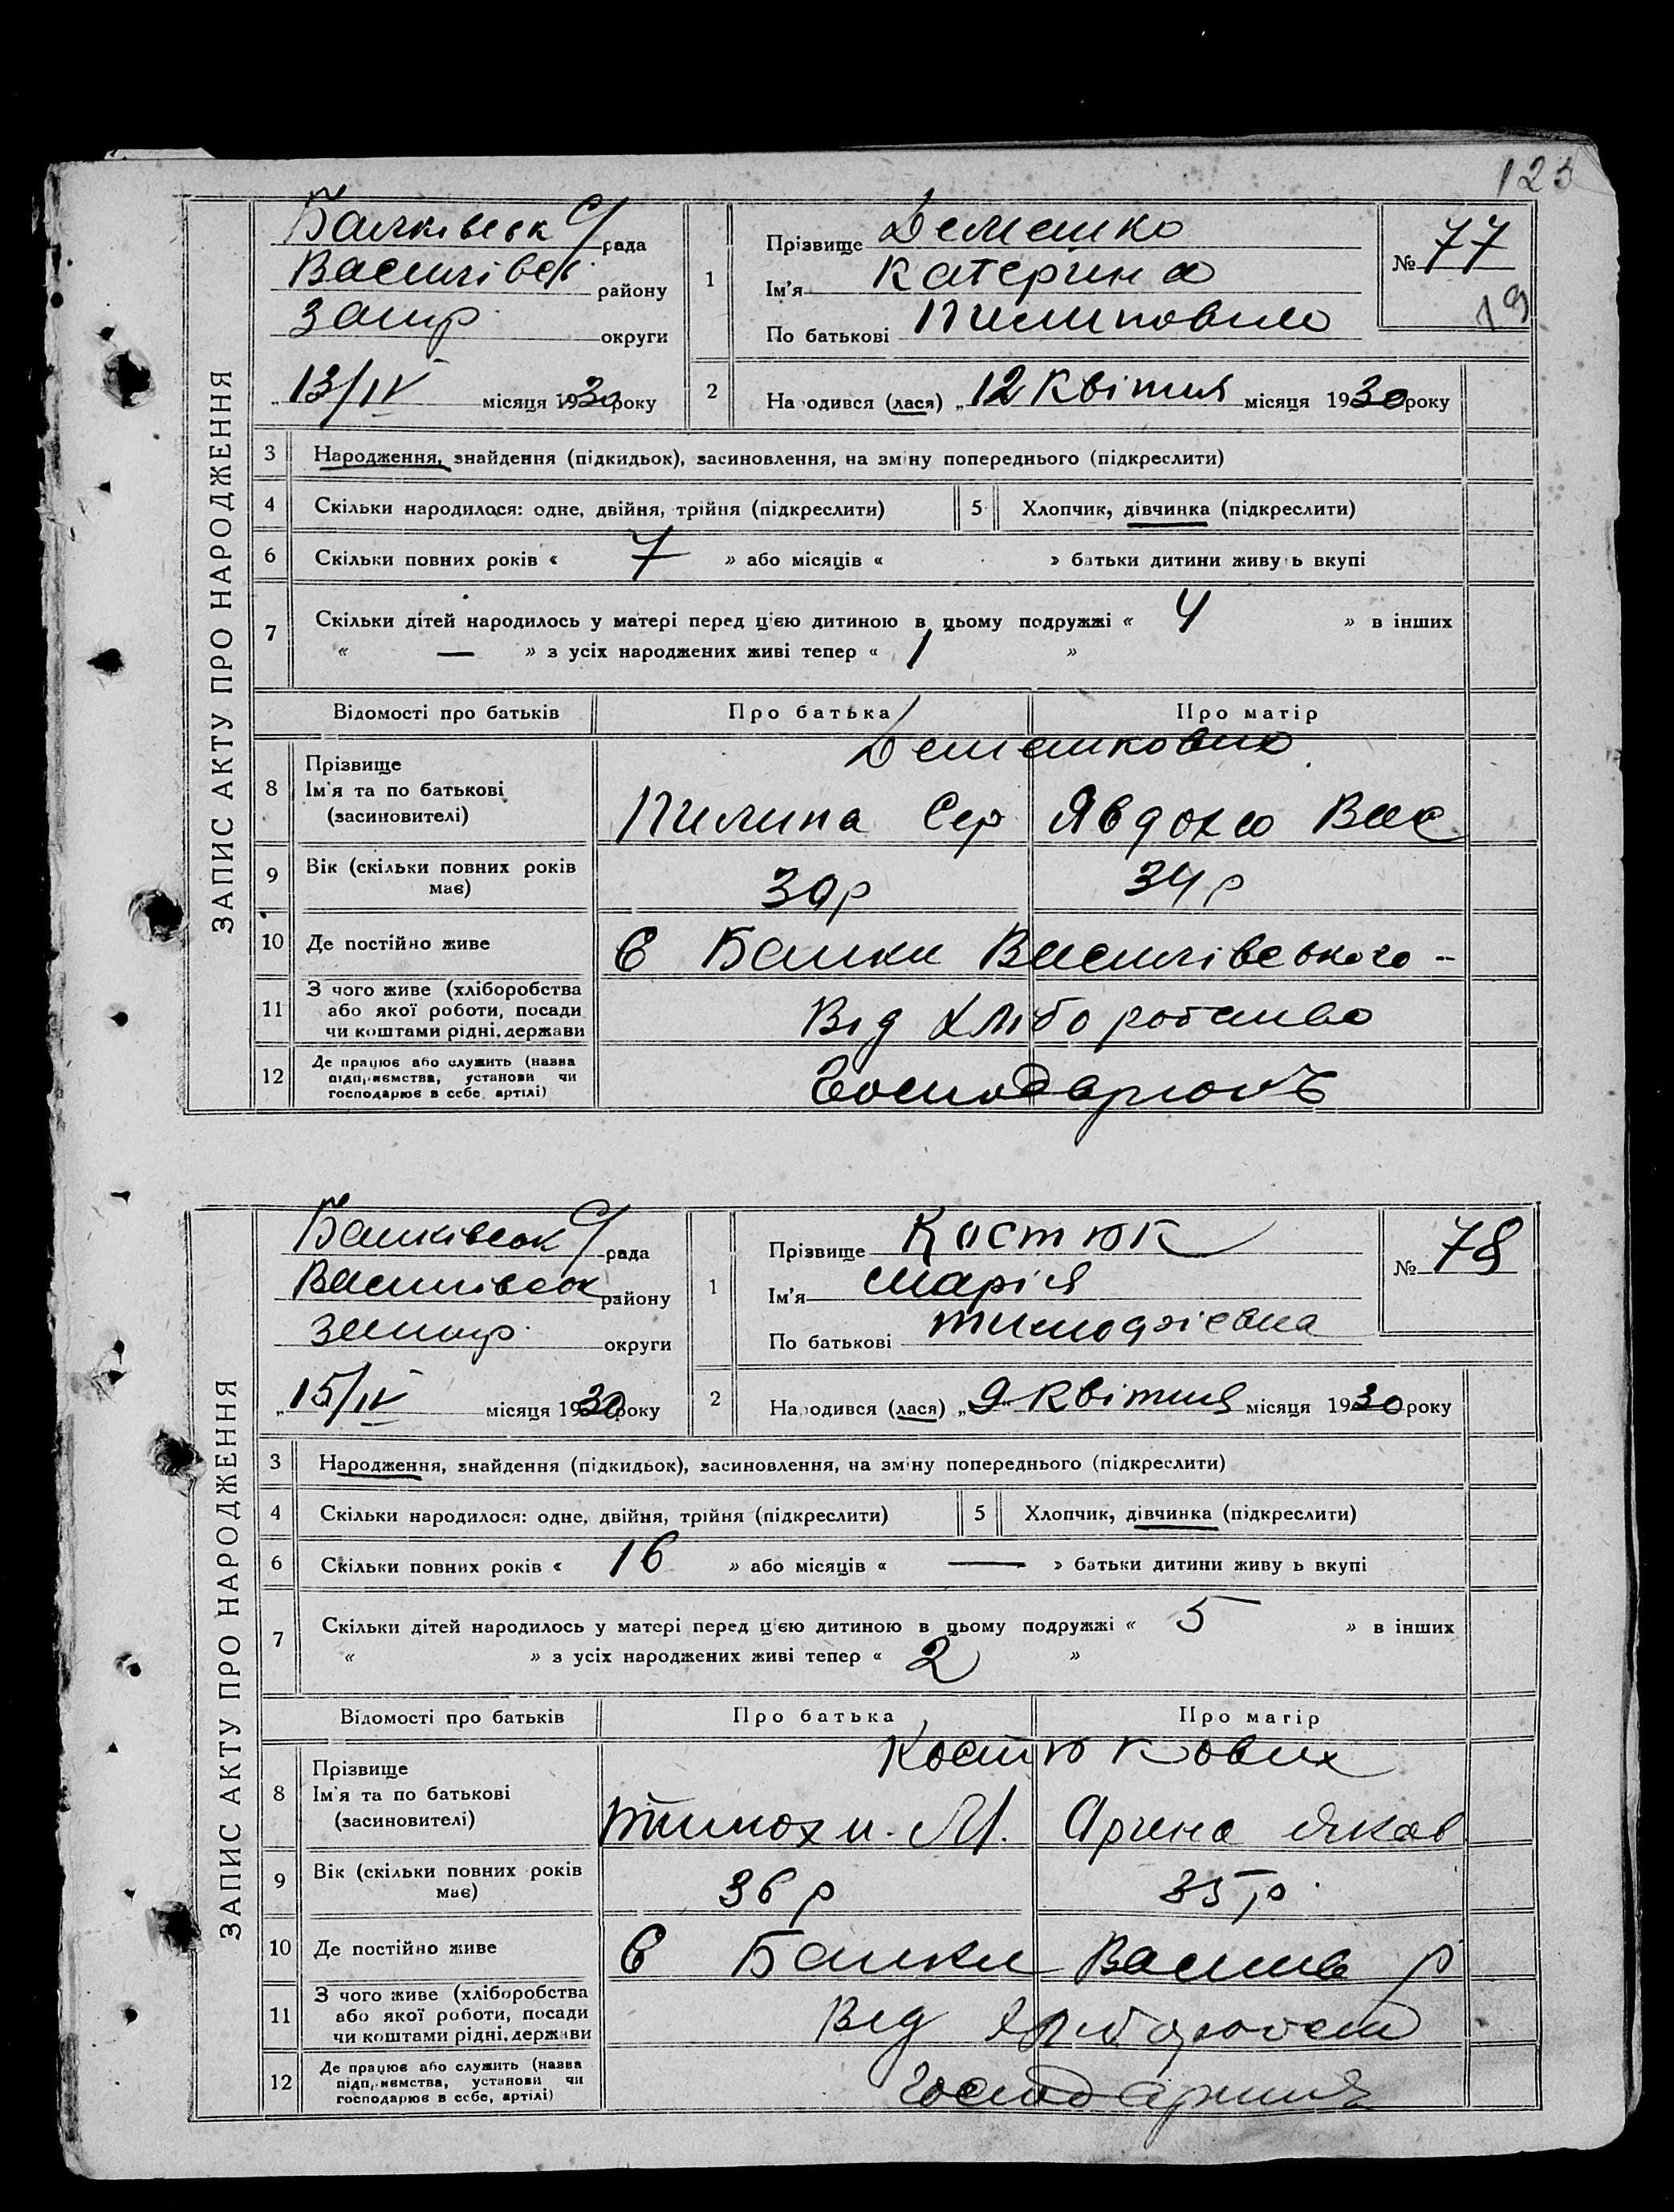 123
ЗАПИС АКТУ ПРО НАРОДЖЕННЯ
Балківськ С/рада
Василівськ району
Запор. округи
„13/IV місяця 1930 року
1 Прізвище Демешко
Ім'я Катерина
По батькові Пилиповна
№ 77
19
2 Народився (лася) „12 Квітня місяця 1930 року
3 Народження, знайдення (підкидьок), засиновлення, на зміну попереднього (підкреслити)
4 Скільки народилося: одне, двійня, трійня (підкреслити) 5 Хлопчик, дівчинка (підкреслити)
6 Скільки повних років « 7 » або місяців « » батьки дитини живуть вкупі
7 Скільки дітей народилось у матері перед цією дитиною в цьому подружжі « 4 » в інших
« — » з усіх народжених живі тепер « 1 »
Відомості про батьків Про батька Про матір
Демешкових
8 Прізвище
Ім'я та по батькові
(засиновителі)
Пилипа Сер Явдохю Вас
9 Вік (скільки повних років має) 30р 34р
10 Де постійно живе С Балки Василівського -
11 З чого живе (хліборобства
або якої роботи, посади
чи коштами рідні, держави
Від Хліборобство
12 Де працює або служить (назва
підприємства, установи чи
господарює в себе, артілі)
ЗАПИС АКТУ ПРО НАРОДЖЕННЯ
Балківськ С/рада
Василівськ району
Запор. округи
„15/IV місяця 1930 року
1 Прізвище Костюк
Ім'я Марія
По батькові
№ 78
2 Народився (лася) „9 Квітня місяця 1930 року
3 Народження, знайдення (підкидьок), засиновлення, на зміну попереднього (підкреслити)
4 Скільки народилося: одне, двійня, трійня (підкреслити) 5 Хлопчик, дівчинка (підкреслити)
6 Скільки повних років « 16 » або місяців « — » батьки дитини живу ь вкупі
7 Скільки дітей народилось у матері перед цією дитиною в цьому подружжі « 5 » в інших
« » з усіх народжених живі тепер « 2 »
Відомості про батьків Про батька Про матір
Костюкових
8 Прізвище
Ім'я та по батькові
(засиновителі)
Тимох и. М. Арина Яков
9 Вік (скільки повних років має) 36 р 35 р.
10 Де постійно живе С Балки Василів р
11 З чого живе (хліборобства
або якої роботи, посади
чи коштами рідні, держави
Від
12 Де працює або служить (назва
підприємства, установи чи
господарює в себе, артілі)